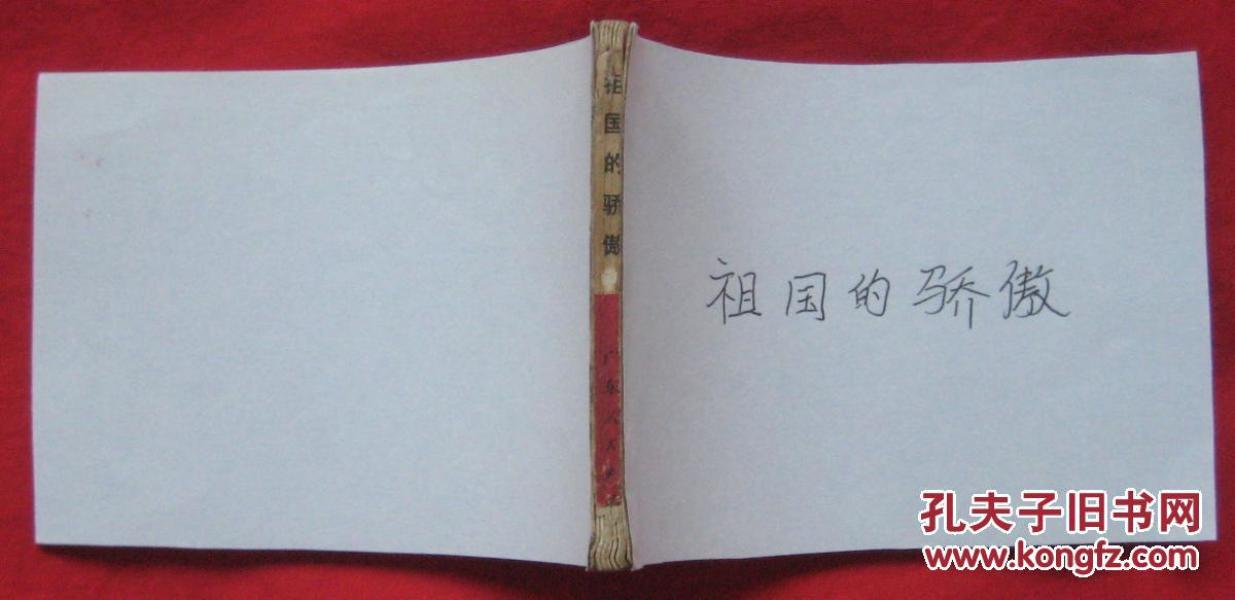 祖国的骄傲
广东人
祖国的骄傲
孔夫子旧书网
www.kongfz.com